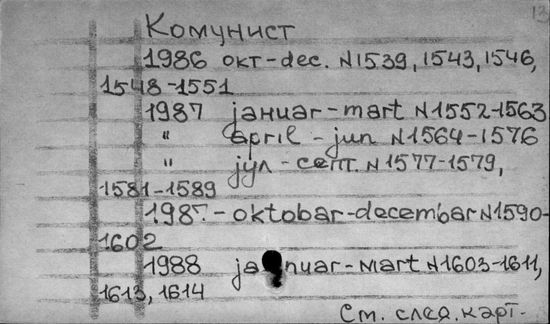 13
Комунист
1986 окт-dec. N1539, 1543, 1546,
1548-1551
1987 јануар-mart N1552-1563
" april - jun N1564-1576
" јул - септ. N1577-1579,
1581-1589
1987 - oktobar-decembar N1590-
1602
1988 januar-mart N1603-1611,
1613, 1614
См. след. карт.